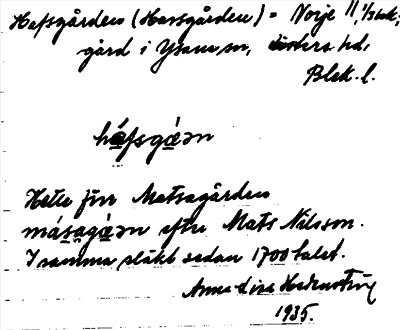 Hafsgården (Harsgården) = Norje 11, 1/3 mtl,
gård i Ysane sn, Listers hd,
Blek. l.
háfsgɑ́ən
Hette förr Matsagården
másagɑ́ən efter Mats Nilsson.
I samma släkt sedan 1700 talet.
Anna-Lisa
1935.